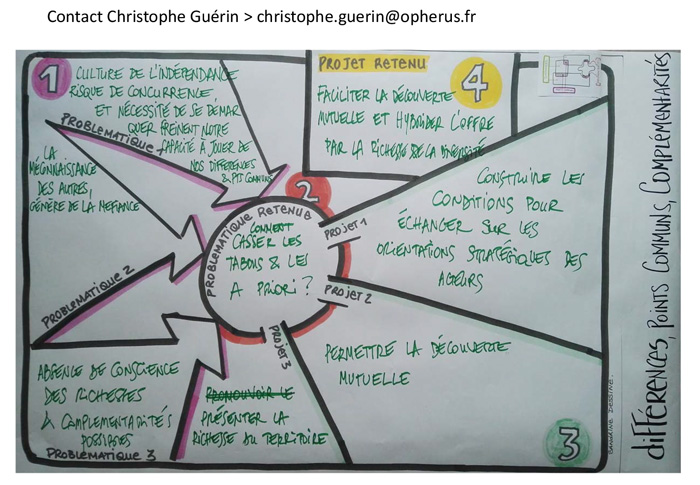 Contact Christophe Guérin > christophe.guerin@opherus.fr
1
CULTURE DE L'INDÉPENDANCE
RISQUE DE CONCURRENCE,
ET NÉCESSITÉ DE SE DÉMAR
QUER FREINENT NOTRE
CAPACITÉ À JOUER DE
NOS DIFFÉRENCES
& PTS COMMUNS
PROBLÉMATIQUE 1
LA
MÉCONNAISSANCE
DES AUTRES,
GÉNÈRE DE LA MEFIANCE
PROBLÉMATIQUE 2
ABSENCE DE CONSCIENCE
DES RICHESSES
& COMPLEMENTARITÉS
POSSIBLES
PROBLÉMATIQUE 3
2
PROBLÉMATIQUE RETENUE
COMMENT
CASSER LES
TABOUS & LES
A PRIORI ?
PROJET 1
CONSTRUIRE LES
CONDITIONS POUR
ÉCHANGER SUR LES
ORIENTATIONS STRATÉGIQUES DES
ACTEURS
PROJET 2
PERMETTRE LA DÉCOUVERTE
MUTUELLE
PROJET 3
PROMOUVOIR LE
PRÉSENTER LA
RICHESSE AU TERRITOIRE
3
PROJET RETENU
4
FACILITER LA DÉCOUVERTE
MUTUELLE ET HYBRIDER L'OFFRE
PAR LA RICHESSE DE LA DIVERSITÉ
DIFFÉRENCES, POINTS COMMUNS, COMPLÉMENTARITÉS
SANDRINE DESSINE.